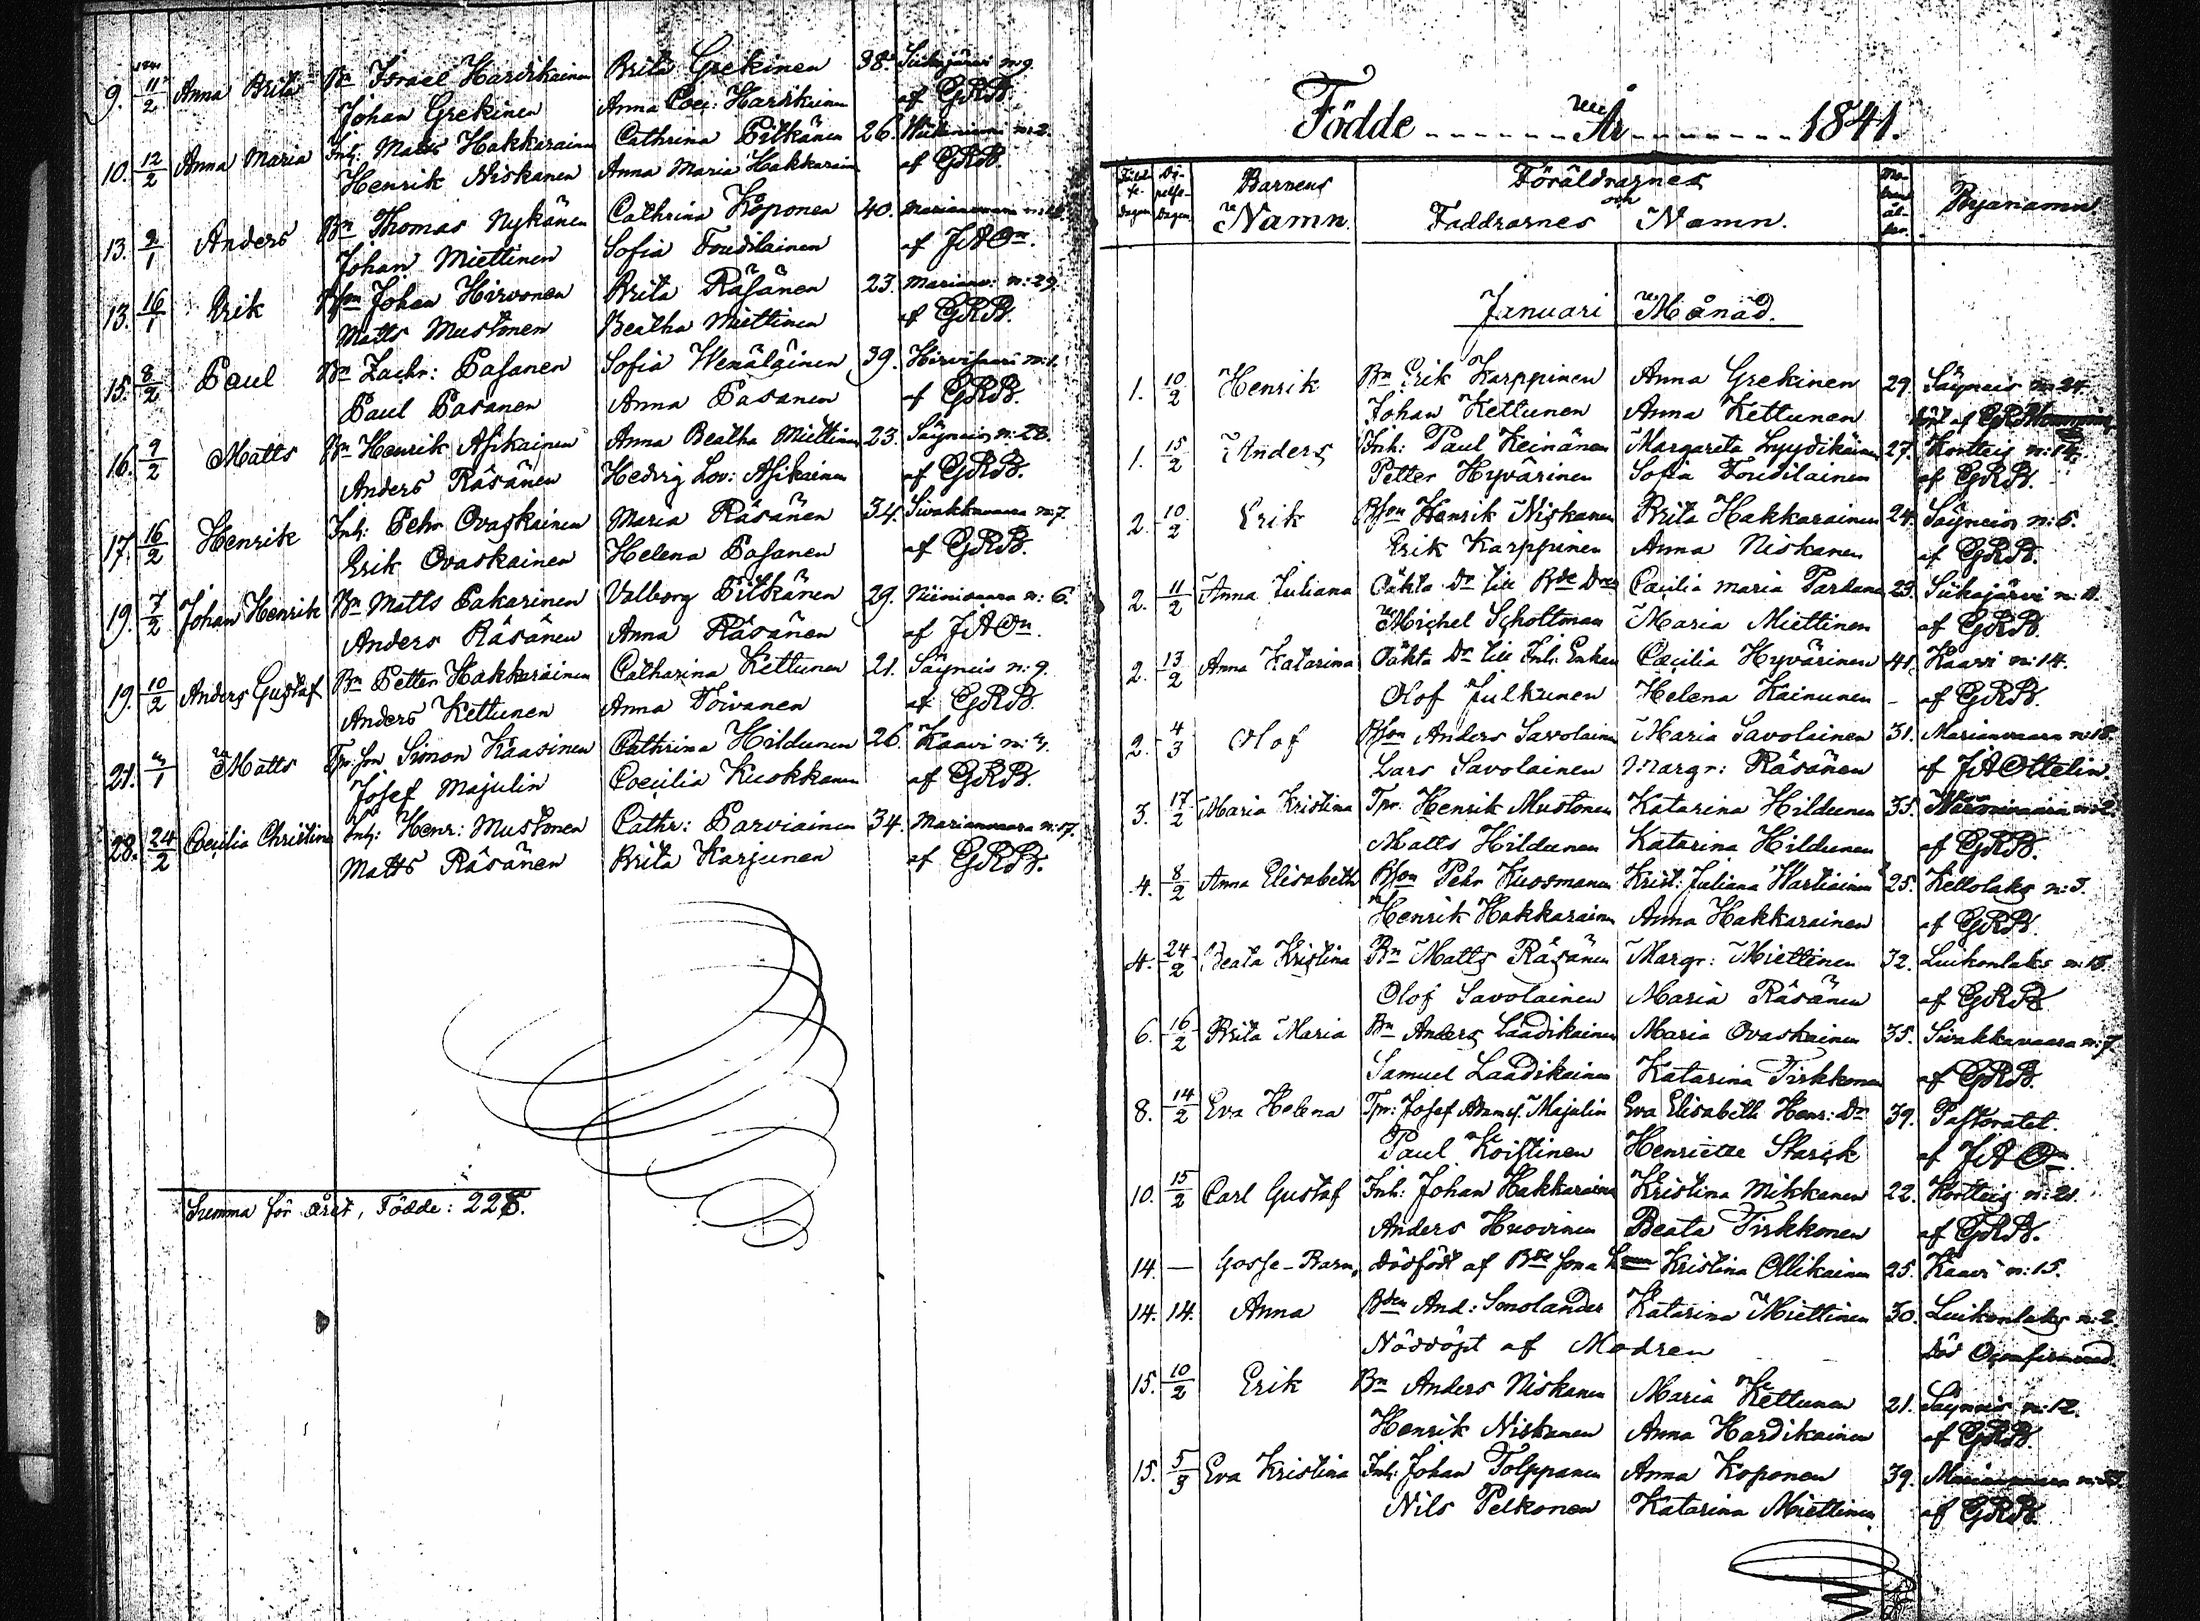 9. 11/2 Anna Brita Bn Israel Hardikainen Brita Grekinen 38. Siikajärvi n:9.
Johan Grekinen Anna Coec: Hardikainen af GRB.
10. 12/2 Anna Maria Inh: Matts Hakkarainen Cathrina Pitkänen 26. n:2.
Henrik Niskanen Anna Maria Hakkarain af GRB.
13. 2/1 Anders Bn Thomas Nykänen Cathrina Koponen 40. Marianvaara
Johan Miettinen Sofia Toudilainen af JAOn.
13. 16/1 Erik Bson Johan Hirvonen Brita Räsänen 23. Marianv: n:29.
Matts Mustonen Beatha Miettinen af GRB.
15. 8/2 Paul Bn Zachr: Pasanen Sofia Wenäläinen 39. Hirvisaari n:1.
Paul Pasanen Anna Pasanen af GRB.
16. 9/2 Matts Bn Henrik Asikainen Anna Beatha Miettinen 23. Säyneis n:28.
Anders Räsänen Hedvig Lov: Asikainen af GRB.
17. 16/2 Henrik Inh: Pehr Ovaskainen Maria Räsänen 34. Sivakkavaara n:7.
Erik Ovaskainen Helena Pasanen af GRB.
19. 7/2 Johan Henrik Bn Matts Pakarinen Valborg Pitkänen 29. Niinivaara n:6.
Anders Räsänen Anna Räsänen af JAOn.
19. 10/2 Anders Gustaf Bn Petter Hakkarainen Catharina Kettunen 21. Säyneis n:9.
Anders Kettunen Anna Toivanen af GRB.
21. Matts Tpr. Son Simon Kaasinen Cathrina Hildunen 26. Kaavi
Josef Majulin Coecilia Kuokkanen af GRB.
28. 24/2 Coecilia Christina Inh: Henr: Mustonen Cathr: Parviainen 34. Marianvaara n:17.
Matts Räsänen Brita Karjunen af GRB.
Summa för året, Födde: 225.
Födde År 1841.
Födelse-dagen Döpelse-dagen Barnens Namn. Föräldrarnes och Faddrarnes Namn. Byanamn
Januari Månad.
1. 10/2 Henrik Bn Erik Karppinen Anna Grekinen 29. Säyneis n:24.
Johan Kettunen Anna Kettunen
1. 15/2 Anders Inh: Paul Keinänen Margareta Lyydikäinen 27. Kortteis n:14.
Petter Hyvärinen Sofia Toudilainen af GRB.
2. 10/2 Erik Bson Henrik Niskanen Brita Hakkarainen 24. Säyneis n:5.
Erik Karppinen Anna Niskanen af GRB.
2. 11/2 Anna Juliana Oäkta Dr till Bde Dren Caecilia Maria Pardanen 23. Siikajärvi
Michel Schottman Maria Miettinen af GRB.
2. 13/2 Anna Katarina Oäkta Dr till Inh: Enkan Caecilia Hyvärinen 41. Kaavi n:14.
Olof Julkunen Helena Kainunen af GRB.
2. 4/3 Olof Bson Anders Savolainen Maria Savolainen 31. Marianvaara n:18.
Lars Savolainen Margr: Räsänen af JAOttelin.
3. 17/2 Maria Kristina Tpr. Henrik Mustonen Katarina Hildunen 35.
Matts Hildunen Katarina Hildunen af GRB.
4. 8/2 Anna Elisabeth Bson Pehr Kuosmanen Krist: Juliana Wartiainen 25. Kettolaks n:3.
Henrik Hakkarainen Anna Hakkarainen af GRB.
4. 24/2 Beata Kristina Bn Matts Räsänen Margr: Miettinen 32. Luikonlaks n:15.
Olof Savolainen Maria Räsänen af GRB
6. 16/2 Brita Maria Bn Anders Laadikainen Maria Ovaskainen 35. Sivakkavaara n:7.
Samuel Laadikainen Katarina Tirkkonen af GRB.
8. 14/2 Eva Helena Tpr: Josef Majulin Eva Elisabeth Henr: Dr 39. Pastoratet.
Paul Koistinen Henriette Starck af JAOn
10. 15/2 Carl Gustaf Inh: Johan Hakkarainen Kristina Mikkanen 22. Kortteis n:21.
Anders Huovinen Beata Tirkkonen af GRB.
14. — Gosse-Barn, dödfödt af Bde Kristina Ollikainen 25. Kaavi n:15.
14. 14. Anna Bden And: Smolander Katarina Miettinen 30. Luikonlaks n:2.
Nöddöpt af Modren död Oconfirmerad.
15. 10/2 Erik Bn Anders Niskanen Maria Kettunen 21. Säyneis n:12.
Henrik Niskanen Anna Hardikainen af GRB.
15. 5/3 Eva Kristina Inh: Johan Tolppanen Anna Koponen 39. Marianvaara
Nils Pelkonen Katarina Miettinen af GRB.